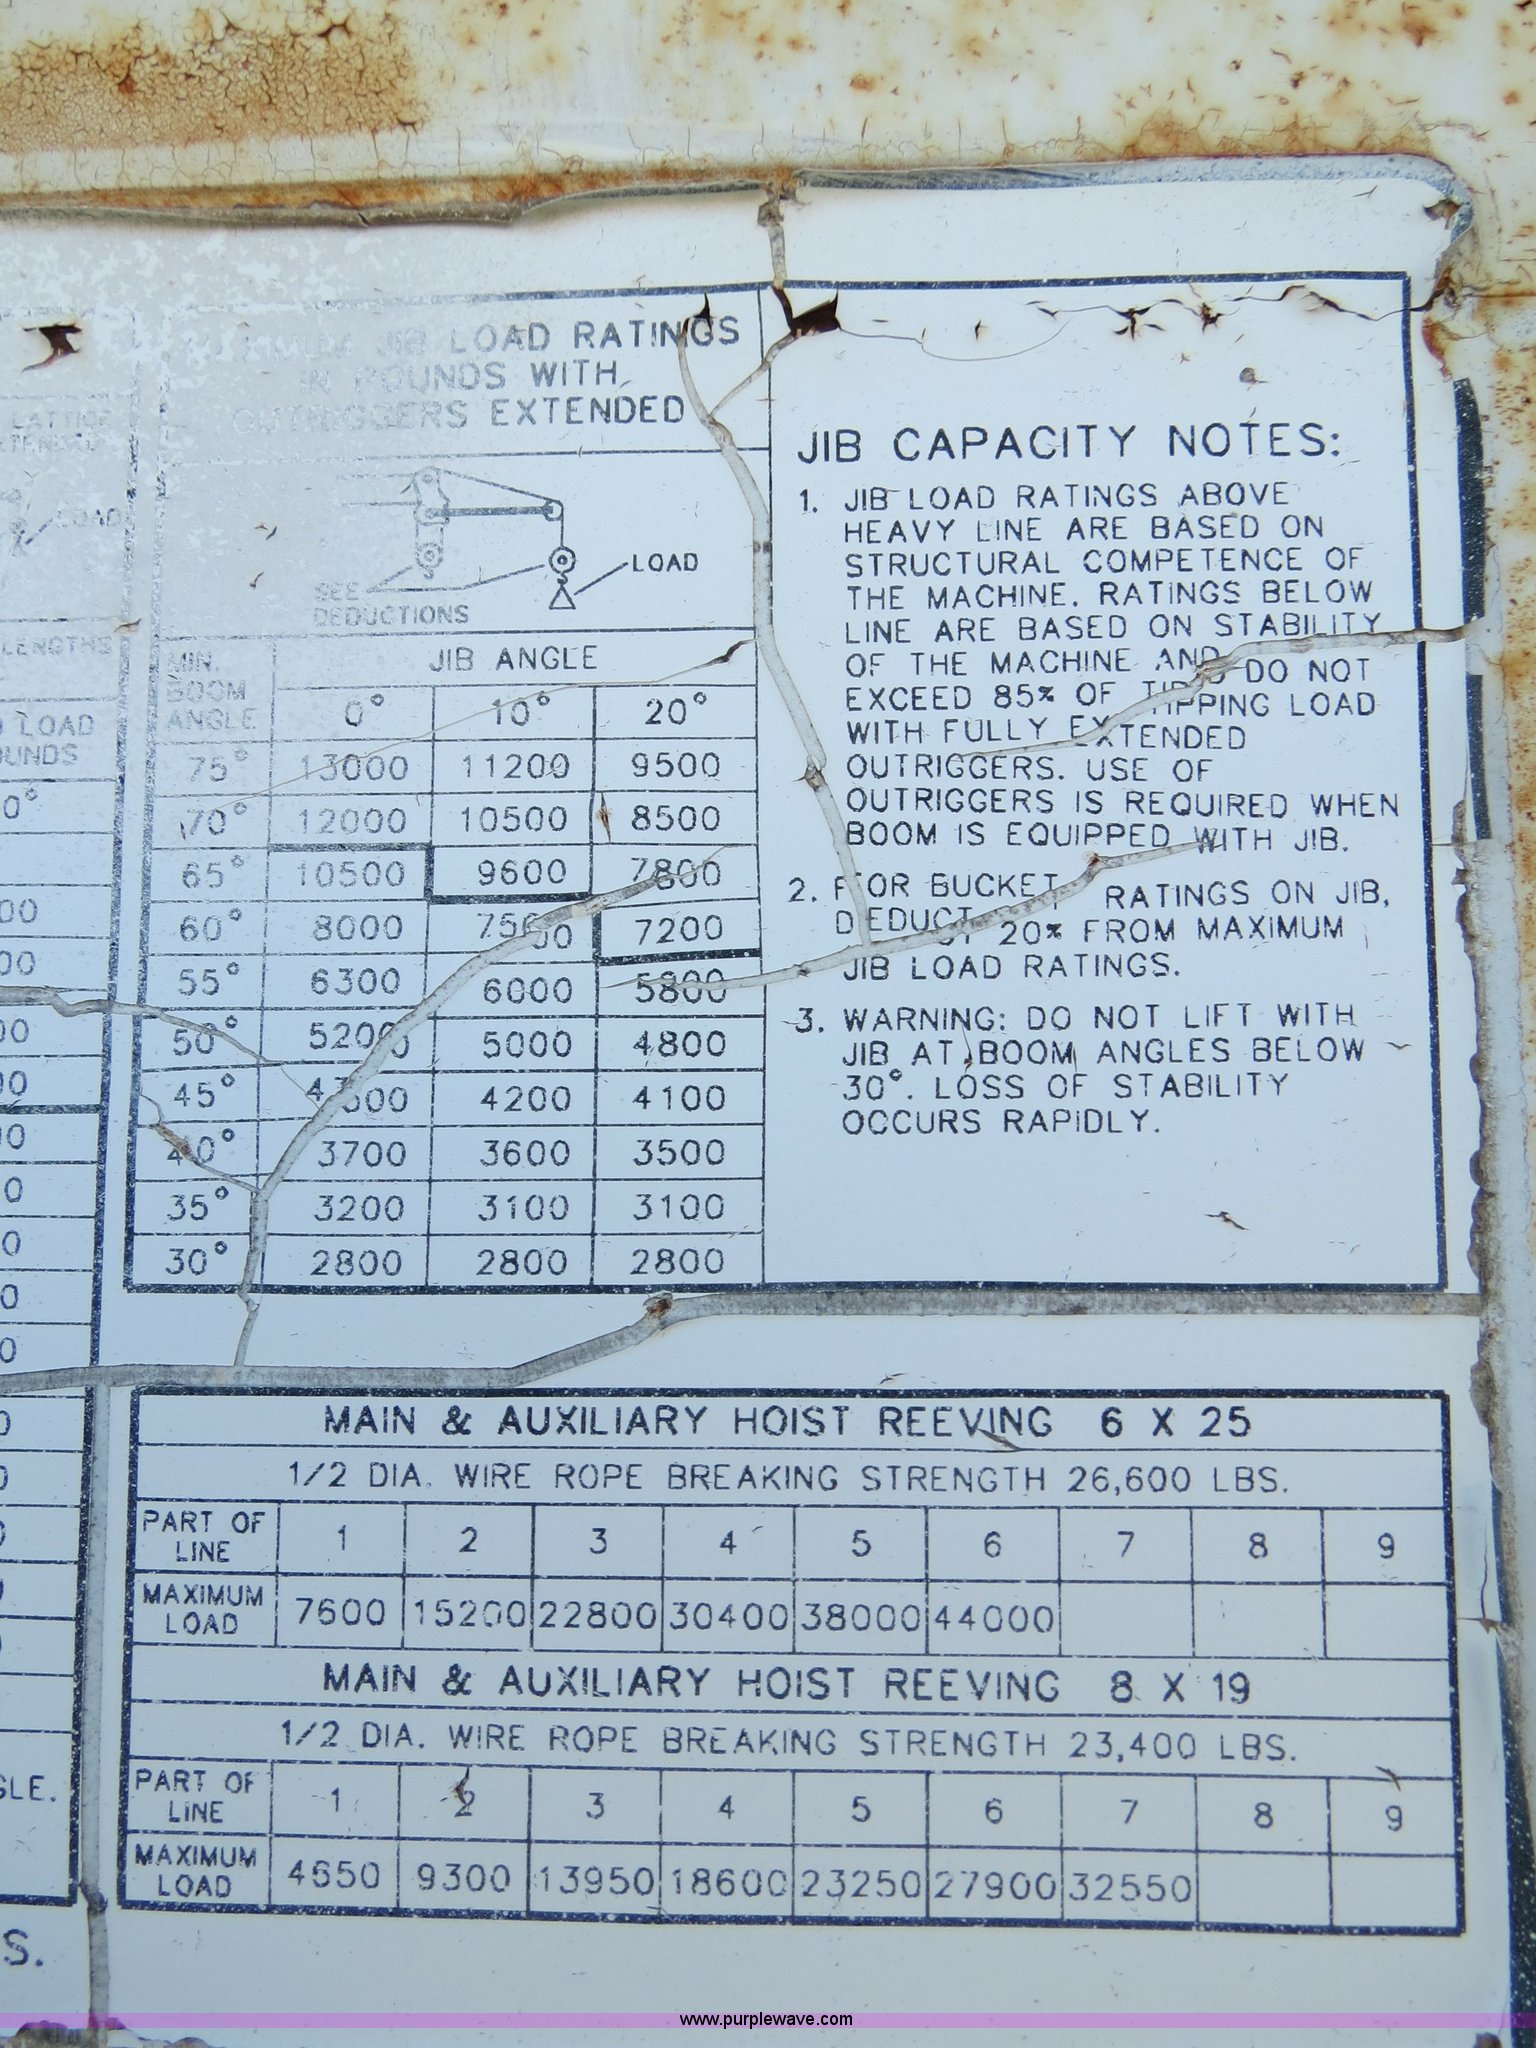 LATTICE
LOAD
LENGTHS
LOAD
GLE.
S.
JIB LOAD RATINGS
IN POUNDS WITH
OUTRIGGERS EXTENDED
LOAD
SEE
DEDUCTIONS
MIN.
BOOM
ANGLE
JIB ANGLE
0° 10° 20°
75° 13000 11200 9500
70° 12000 10500 8500
65° 10500 9600 7800
60° 8000 7500 7200
55° 6300 6000 5800
50° 5200 5000 4800
45° 4300 4200 4100
40° 3700 3600 3500
35° 3200 3100 3100
30° 2800 2800 2800
JIB CAPACITY NOTES:
1. JIB LOAD RATINGS ABOVE
HEAVY LINE ARE BASED ON
STRUCTURAL COMPETENCE OF
THE MACHINE. RATINGS BELOW
LINE ARE BASED ON STABILITY
OF THE MACHINE AND DO NOT
EXCEED 85% OF TIPPING LOAD
WITH FULLY EXTENDED
OUTRIGGERS. USE OF
OUTRIGGERS IS REQUIRED WHEN
BOOM IS EQUIPPED WITH JIB.
2. FOR BUCKET RATINGS ON JIB,
DEDUCT 20% FROM MAXIMUM
JIB LOAD RATINGS.
3. WARNING: DO NOT LIFT WITH
JIB AT BOOM ANGLES BELOW
30°. LOSS OF STABILITY
OCCURS RAPIDLY.
MAIN & AUXILIARY HOIST REEVING 6 X 25
1/2 DIA. WIRE ROPE BREAKING STRENGTH 26,600 LBS.
PART OF
LINE
1 2 3 4 5 6 7 8 9
MAXIMUM
LOAD
7600 15200 22800 30400 38000 44000
MAIN & AUXILIARY HOIST REEVING 8 X 19
1/2 DIA. WIRE ROPE BREAKING STRENGTH 23,400 LBS.
PART OF
LINE
1 2 3 4 5 6 7 8 9
MAXIMUM
LOAD
4650 9300 13950 18600 23250 27900 32550
www.purplewave.com